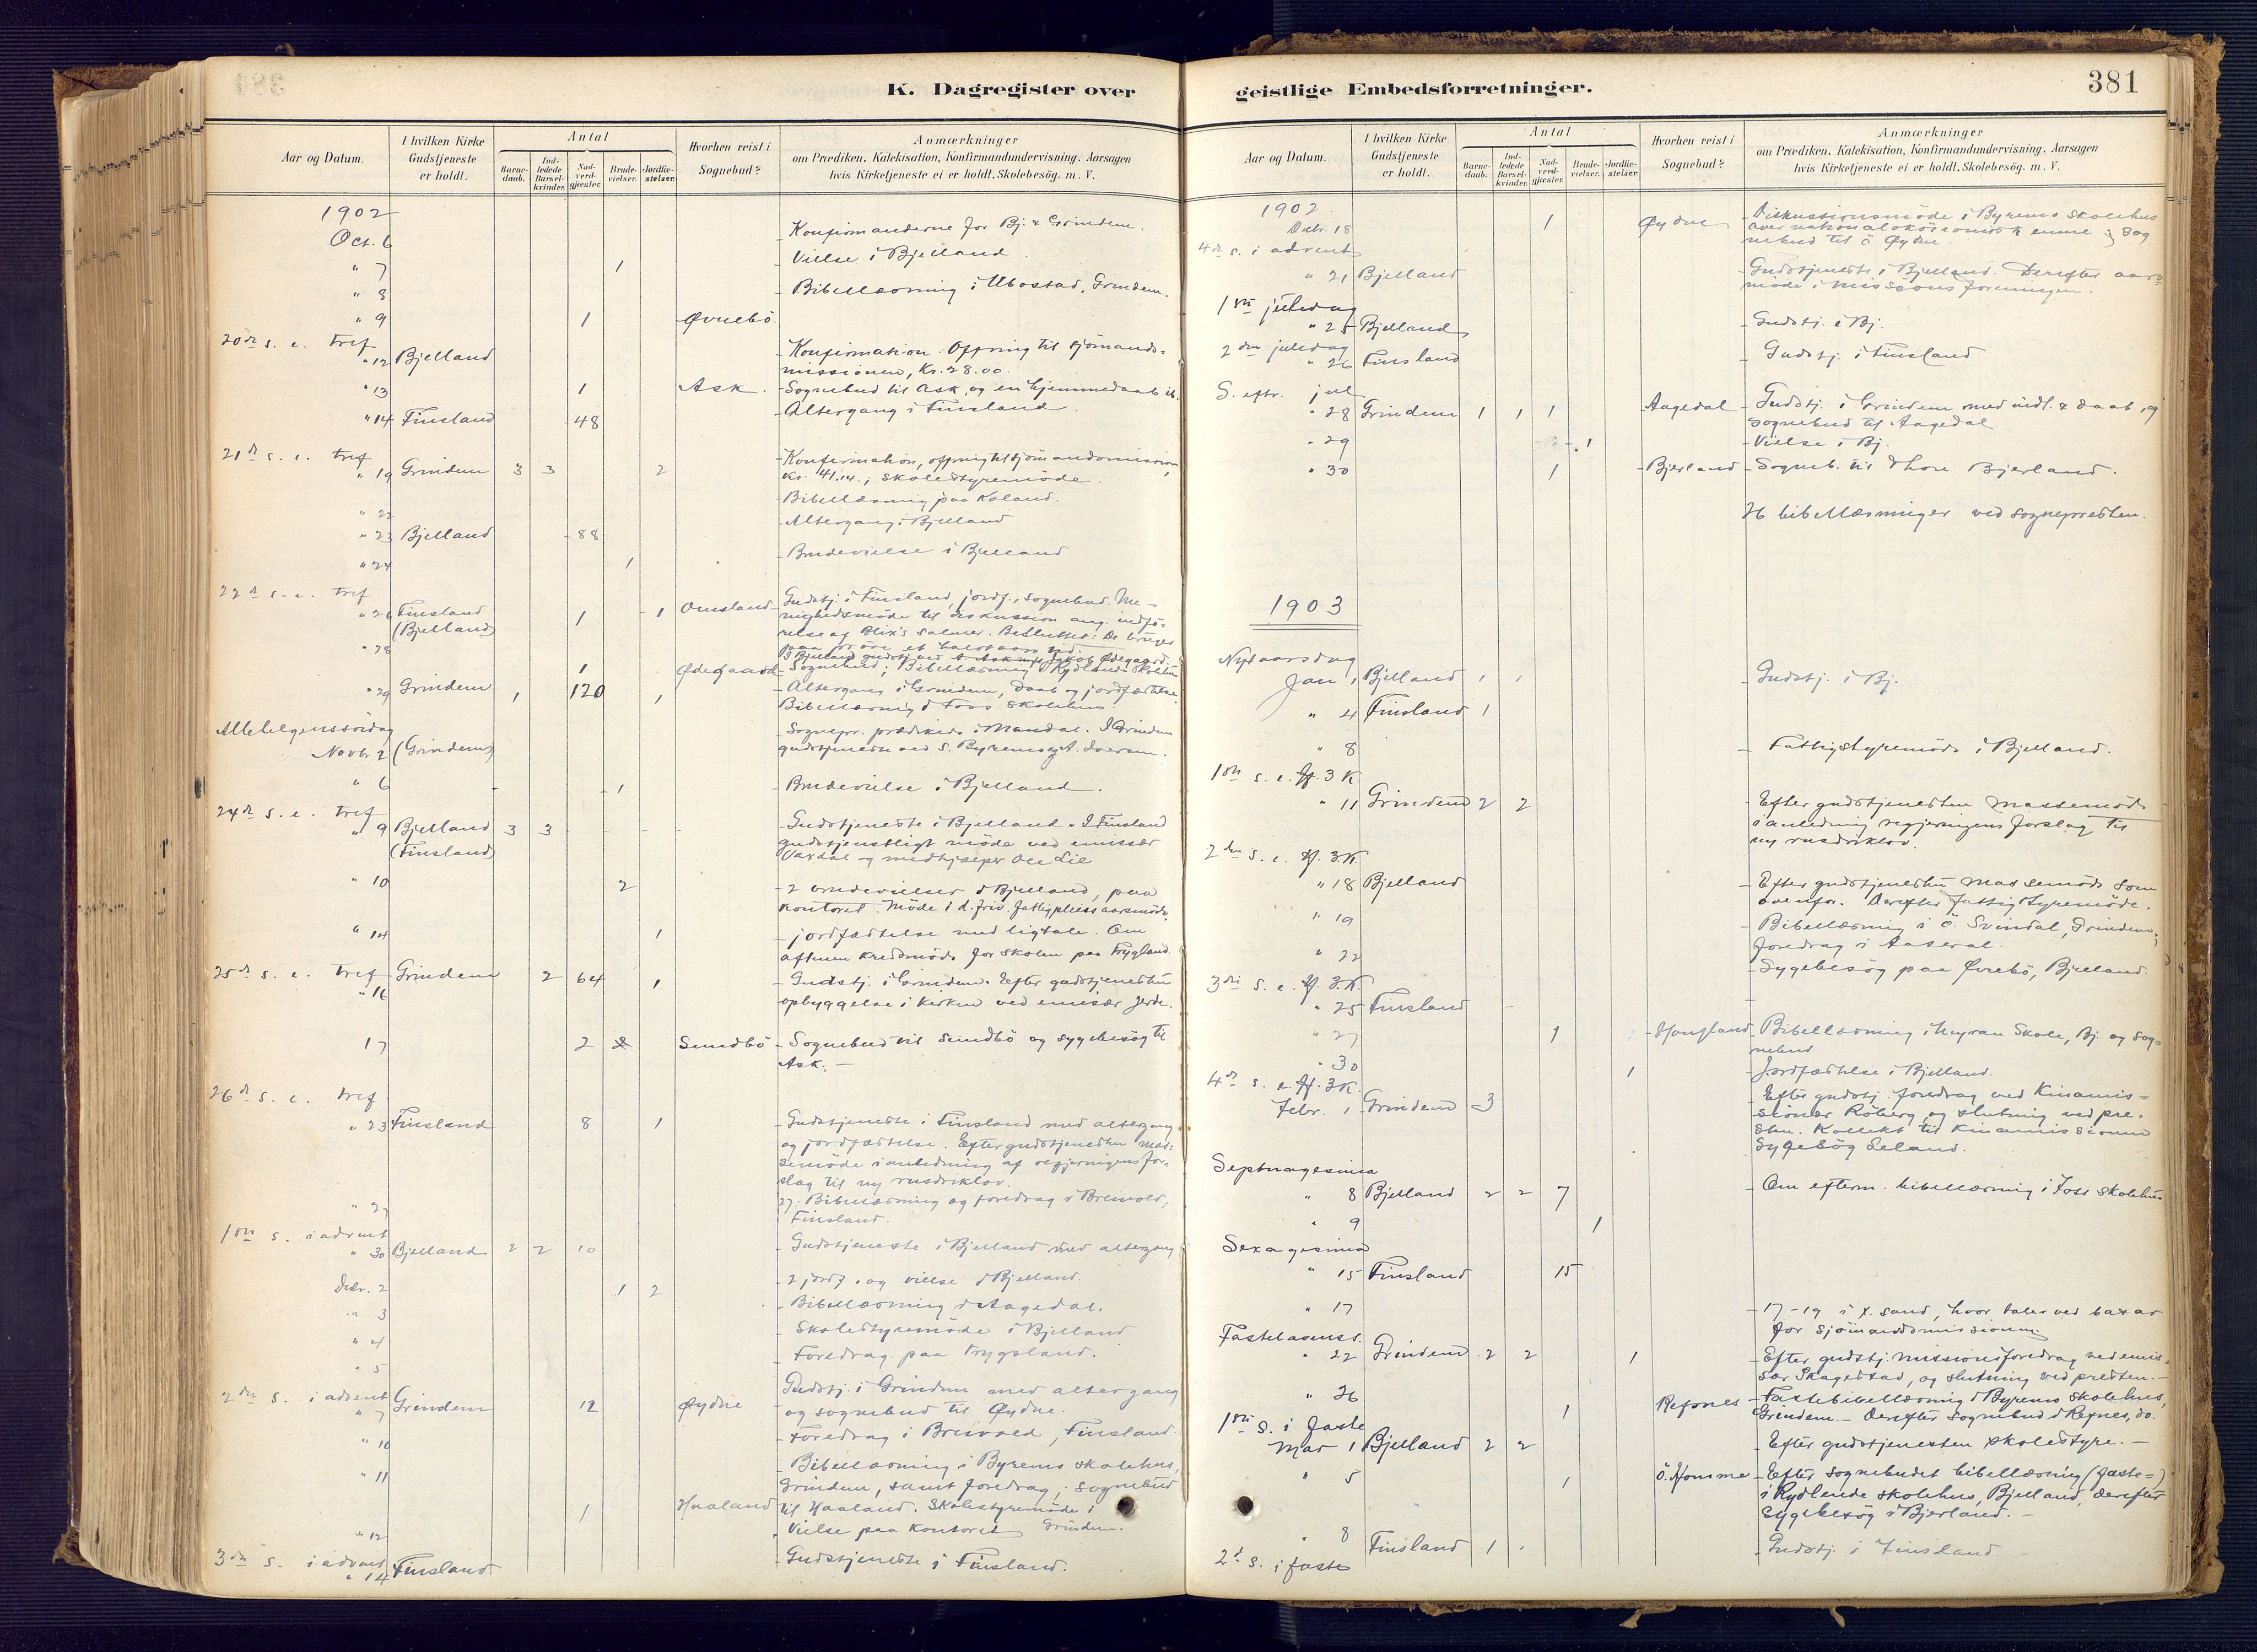 K. Dagregister over
Aar og Datum.
I hvilken Kirke Gudstjeneste er holdt.
Antal
Barnedaab.
Indledede Barselkvinder.
Nadverdgjæster.
Brudevielser.
Jordfæstelser.
Hvorhen reist i Sognebud?
Anmærkninger
om Prædiken, Katekisation, Konfirmandundervisning, Aarsagen
hvis Kirketjeneste ei er holdt, Skolebesög. m. V.
1902
Oct. 6 - Konfirmanderne for Bj. & Grindem.
" 7 1 - Vielse i Bjelland
" 8 - Bibellæsning i Ubostad, Grindem.
" 9 1 Øvrebö
20de s. e. tref
" 12 Bjelland - Konfirmation. Offring til sjömands=
missionen, Kr. 28.00.
" 13 1 Ask. - Sognebud til Ask, og en hjemmedaab ib.
" 14 Finsland 48 - Altergang i Finsland.
21de s. e. tref
" 19 Grindem 3 3 2 - Konfirmation, offring til sjömandsmission
Kr. 41.14.; skolestyremöde.
" 22 - Bibellæsning paa Koland.
" 23 Bjelland 88 - Altergang i Bjelland
" 24 1 - Brudevielse i Bjelland
22de s. e. tref
" 26 Finsland 1 1 Omsland - Gudstj. i Finsland, jordf., sognebud. Me-
(Bjelland) nighedsmöde til diskussion ang. indfö-
relse af Blix's salmer. Besluttet: De bruges
paa pröve et halvt aars tid.
" 28 1 Ødegaard - Sognebud; Bibellæsning Rydlands Skolehus
" 29 Grindem 1 120 1 - Altergang i Grindem, daab og jordfæstelse.
Bibellæsning i Foss skolehus.
Allehelgenssöndag
Novb. 2 (Grindem) - Sognepr. prædikede i Mandal. I Grindem
gudstjeneste ved S. Byremo og A. Iversen.
" 6 1 - Brudevielse i Bjelland.
24de s. e. tref
" 9 Bjelland 3 3 - Gudstjeneste i Bjelland. I Finsland
(Finsland) gudstjenstligt möde ved emissær
Vardal og medhjælper Ole Lie
" 10 2 - 2 brudevielser i Bjelland, paa
kontoret. Möde i d. friv. fattigpleies aarsmöde.
" 14 1 - jordfæstelse med ligtale. Om
aftenen kredsmöde for skolen paa Trygland.
25de s. e. tref Grindem 2 64 1 - Gudstj. i Grindem. Efter gudstjenesten
" 16 opbyggelse i kirken ved emisær Jerde.
17 2 Sundbö - Sognebud til Sundbö og sygebesög til
Ask. -
26de s. e. tref
" 23 Finsland 8 1 - Gudstjeneste i Finsland med altergang
og jordfæstelse. Efter gudstjenesten mas=
semöde i anledning af regjeringens for=
slag til ny rusdriklov.
" 27 27. Bibellæsning og foredrag i Breivold,
Finsland.
1ste s. i advent
" 30 Bjelland 2 2 10 - Gudstjeneste i Bjelland med altergang
Decbr. 2 1 2 - 2 jordf. og vielse i Bjelland.
" 3 - Bibellæsning i Aagedal.
" 4 - Skolestyremöde i Bjelland
" 5 - Foredrag paa Trygsland.
2den s. i advent Grindem 12 Øydne - Gudstj. i Grindem med altergang
" 7 og sognebud til Øydne.
" 10 - Foredrag i Breivold, Finsland
" 11 - Bibellæsning i Byremo skolehus,
Grindem, samt foredrag; sognebud
1 Haaland til Haaland. Skolestyremöde i
" 12 - Vielse paa kontoret Grindem.
3die s. i advent Finsland - Gudstjeneste i Finsland.
" 14
geistlige Embedsforretninger.
381
Aar og Datum.
I hvilken Kirke Gudstjeneste er holdt.
Antal
Barnedaab.
Indledede Barselkvinder.
Nadverdgjæster.
Brudevielser.
Jordfæstelser.
Hvorhen reist i Sognebud?
Anmærkninger
om Prædiken, Katekisation, Konfirmandundervisning, Aarsagen
hvis Kirketjeneste ei er holdt, Skolebesög. m. V.
1902
Decbr. 18 1 Øydne - Diskussionsmöde i Byremo skolehus
over nationalökonomisk emne; sog
nebud til ö Øydne.
4de s. i advent
" 21 Bjelland - Gudstjeneste i Bjelland. Derefter aars
möde i missionsforeningen.
1ste juledag
" 25 Bjelland - Gudstj. i Bj.
2den juledag
" 26 Finsland - Gudstj. i Finsland
S. eftr. jul
" 28 Grindem 1 1 1 Aagedal - Gudstj. i Grindem med indl. & daab, og
sognebud til Aagedal
" 29 1 - Vielse i Bj.
" 30 1 Bjerland - Sogneb. til Thore Bjerland.
26 bibellæsninger ved sognepresten.
1903
Nytaarsdag
Jan 1 Bjelland 1 1 - Gudstj. i Bj.
" 4 Finsland 1
" 8 - Fattigstyremöde i Bjelland.
1ste s. e. H. 3 K
" 11 Grindem 2 2 - Efter gudstjenesten massemöde
i anledning regjeringens forslag til
ny rusdriklov.
2den s. e. H. 3 K.
" 18 Bjelland - Efter gudstjenesten massemöde som
ovenfor. Derefter fattigstyremöde.
" 19 - Bibellæsning i Ö. Svindal, Grindem;
foredrag i Aaseral.
" 22 - Sygebesög paa Øvrebö, Bjelland.
3die s. e. H. 3 K.
" 25 Finsland
" 27 1 Haugland - Bibellæsning i Myran Skole, Bj. og sog=
nebud
" 30 1 - Jordfæstelse i Bjelland.
4de s. e. H. 3 K.
Febr. 1 Grindem 3 - Efter gudstj. foredrag ved Kinamis=
sionær Röberg og slutning ved pre-
sten. Kollekt til Kinamissionen
Sygebesög Leland.
Septuagesima
" 8 Bjelland 2 2 7 - Om efterm. bibellæsning i Foss skolehus
" 9 1
Sexagesima
" 15 Finsland 15
" 17 - 17-19 i K. sand, hvor taler ved basar
for sjömandsmissionen.
Fastelavenss.
" 22 Grindem 2 2 1 - Efter gudstj. missionsforedrag ved emis-
sær Skagestad, og slutning ved presten. -
" 26 1 Refsnes - Fastebibellæsning i Byremo skolehus,
Grindem. - Derefter sognebud i Refsnes, do.
1ste s. i faste
Mar 1 Bjelland 2 2 - Efter gudstjenesten skolestyre. -
" 5 1 Ö. Homme - Efter sognebudet bibellæsning (faste=)
i Rydlende skolehus, Bjelland, derefter
sygebesög i Bjerland. -
" 8 Finsland 1 - Gudstj. i Finsland
2d s. i faste